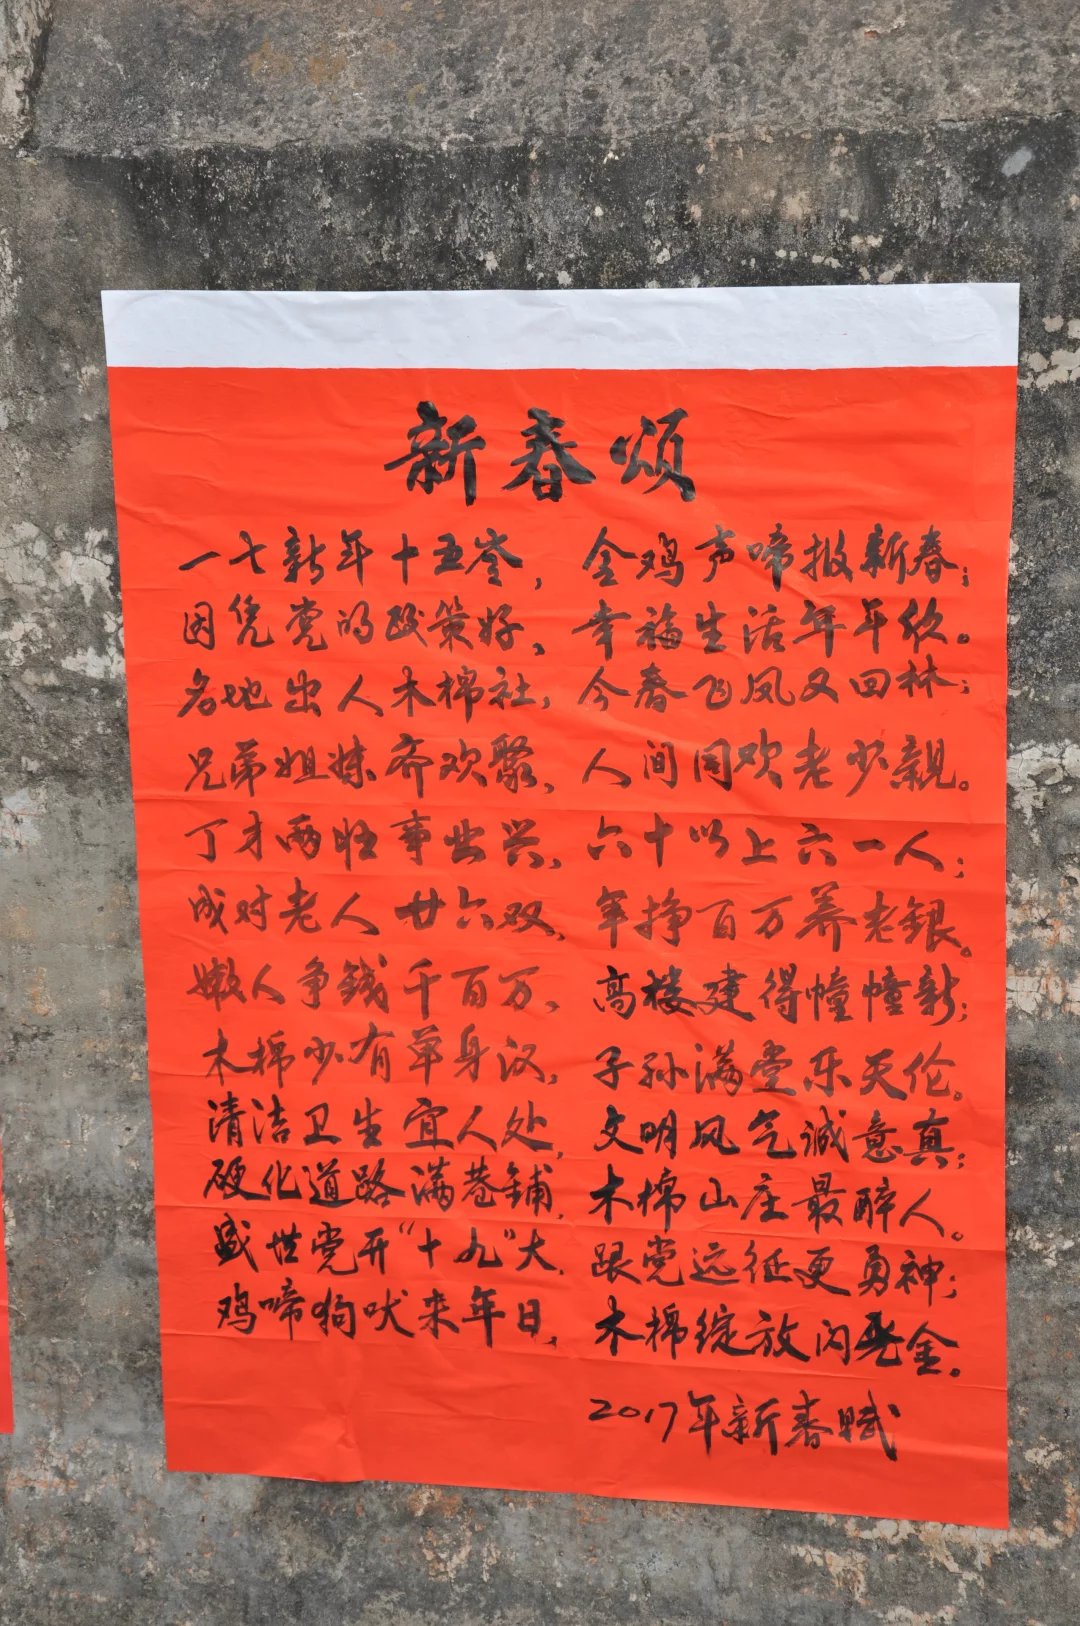 新春颂
一七新年十五岺，金鸡声啼报新春；
因凭党的政策好，幸福生活年年欣。
各地出人木棉社，今春飞凤又回林；
兄弟姐妹齐欢聚，人间同欢老少親。
丁才两旺事业兴，六十以上六一人；
成对老人廿六双，年挣百万养老銀。
嫩人争錢千百万，高楼建得幢幢新；
木棉少有单身汉，子孙满堂乐天伦。
清洁卫生宜人处，文明风气诚意真；
硬化道路满巷铺，木棉山庄最醉人。
盛世党开“十九”大，跟党远征更勇神；
鸡啼狗吠来年日，木棉绽放闪光金。
2017年新春赋